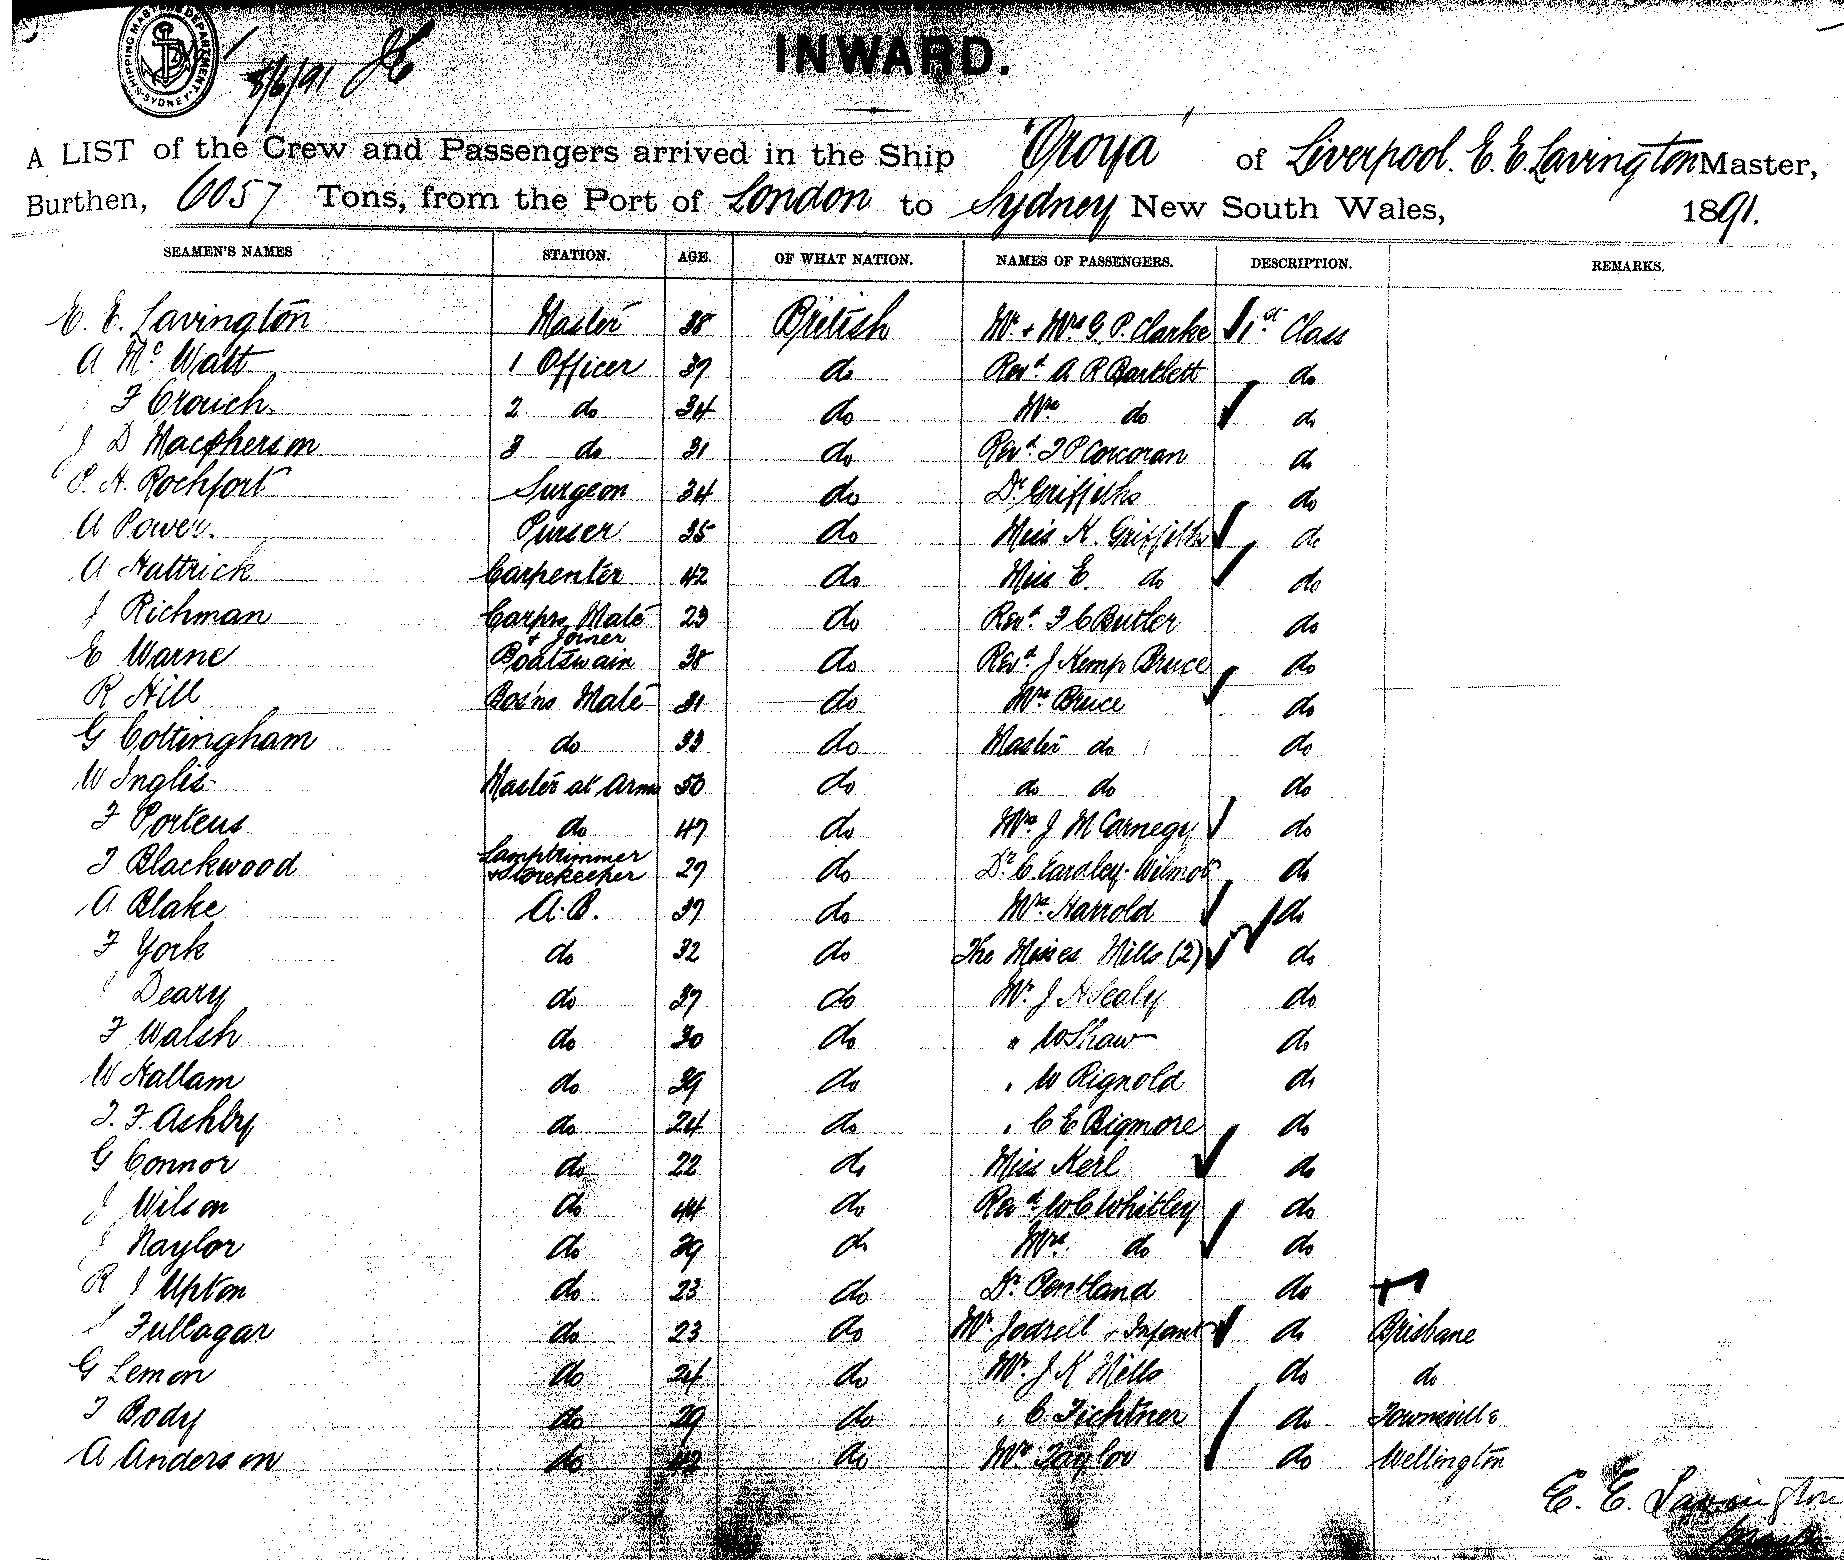 SHIPPING MASTER'S DEPARTMENT. SYDNEY
8/6/91
INWARD.
A LIST of the Crew and Passengers arrived in the Ship "Oroya" of Liverpool. E. E. Lavington Master,
Burthen, 6057 Tons, from the Port of London to Sydney New South Wales, 1891.
SEAMEN'S NAMES STATION. AGE. OF WHAT NATION. NAMES OF PASSENGERS. DESCRIPTION. REMARKS.
E. E. Lavington Master 38 British Mr. + Mrs G. P. Clarke 1st Class
A Mc Watt 1 Officer 37 do Revd. A R Bartlett do
F Crouch 2 do 34 do Mrs do do
J D Macpherson 3 do 31 do Revd. T P Corcoran do
P. H. Rochfort Surgeon 34 do Dr Griffiths do
A Power. Purser 35 do Miss K. Griffiths do
A Hattrick Carpenter 42 do Miss E. do do
J Richman Carprs Mate + Joiner 23 do Revd. F C Butler do
E Warne Boatswain 38 do Revd. J Kemp Bruce do
R Hill Bos'ns Mate 31 do Mrs Bruce do
G Cottingham do 33 do Master do do
W Inglis Master at Arms 50 do do do do
F Porteus do 47 do Mrs. J M Carnegy do
T Blackwood Lamptrimmer + Storekeeper 27 do Dr. C. Eardley-Wilmot do
A Blake A.B. 37 do Mrs. Harrold do
F York do 32 do The Misses Mills (2) do
Deary do 37 do Mr. J H Sealy do
F Walsh do 30 do " W Shaw do
W Hallam do 39 do " W Rignold do
T. F. Ashby do 24 do " C E Bigmore do
G Connor do 22 do Miss Kerl do
J Wilson do 44 do Revd. W C Whitley do
J Naylor do 39 do Mrs. do do
R J Upton do 23 do Dr. Pentland do
Fullagar do 23 do Mr. Jodrell + Infant do Brisbane
G Lemon do 24 do Mr. J K Mills do do
T Body do 29 do " C. Fichtner do Townsville
A Anderson do 42 do Mrs Taylor do Wellington
E. E. Lavington